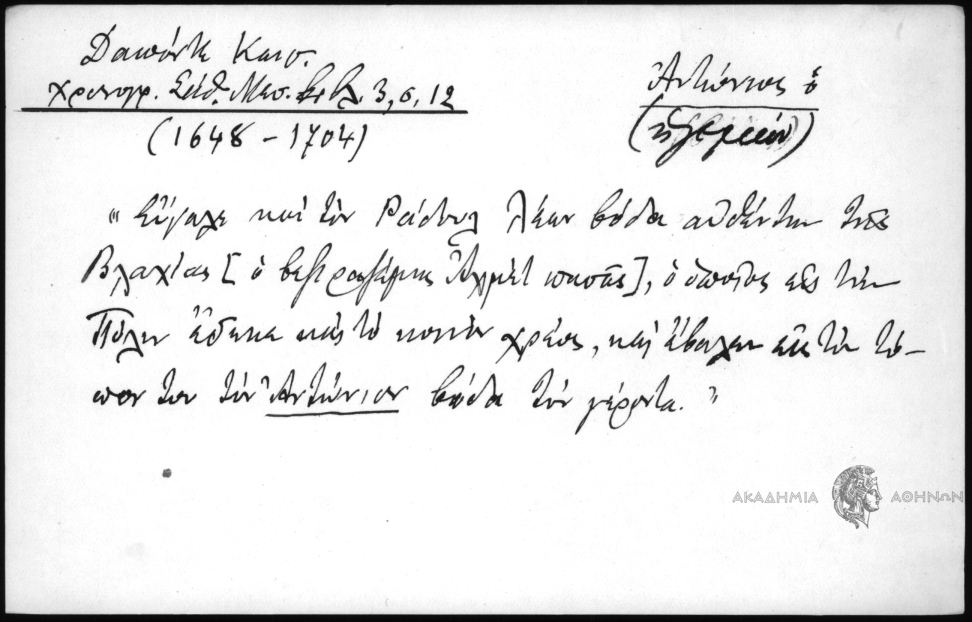 Δαπόντε Καισ.
χρονογρ. Σάθ. Μεσ. Βιβλ. 3, σ. 12
(1648 – 1704)
Ἀντώνιος ὁ
(ἡγεμών)
"Εὔγαλε καὶ τὸν Ράδουλ Λέων βόδα αὐθέντην τῆς
Βλαχίας [ὁ βεζιραζέμης Ἀχμὲτ πασᾶς], ὁ ὁποῖος εἰς τὴν
Πόλιν ἔδωκε καὶ τὸ κοινὸν χρέος, καὶ ἔβαλεν εἰς τὸν τό-
πον του τὸν Ἀντώνιον βόδα τὸν γέροντα."
ΑΚΑΔΗΜΙΑ ΑΘΗΝΩΝ